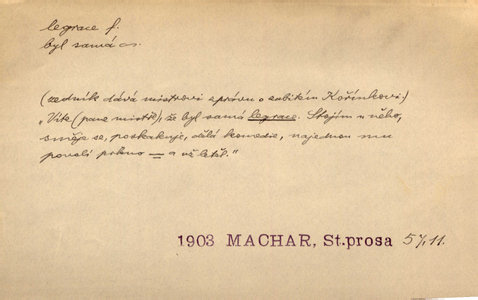 legrace f.
byl samá ~.
(zedník dává mistrovi zprávu o zabitém Kořínkovi:)
„Víte (pane mistře), že byl samá legrace. Stojím u něho,
směje se, poskakuje, dělá komedie, najednou mu
povolí prkno — a už letěl."
1903 MACHAR, St.prosa 57,11.